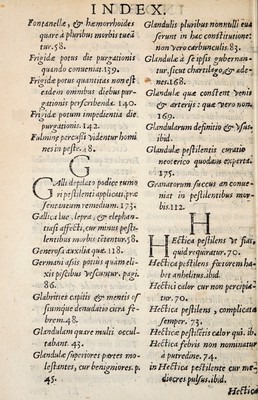 INDEX.
Fontanellæ, & hæmorrhoides
quare à pluribus morbis tueã
tur.58.
Frigidæ potus die purgationis
quando conueniat.139.
Frigidæ potus quantitas non est
eadem omnibus diebus pur-
gationis perscribenda. 140.
Frigidæ potum impedientia die
purgationis. 142.
Fulmine percussi videntur homi
nes in peste. 48.
G
Galli depilato podice tumo
ri pestilenti applicati, præ
sentaneum remedium. 173.
Gallica lue, lepra, & elephan-
tiasi affecti, cur minus pesti-
lentibus morbis tētentur.58.
Generosa axxilia quæ. 118.
Germani assis potius quàm eli-
xis piscibus vescuntur. pagi.
86.
Glabrities capitis & mentis of
siumque denudatio cura fe-
brem.48.
Glandulam quare multi occul-
tabant. 43.
Glandulæ superiores partes mo-
lestantes, cur benigniores. p.
45.
Glandulis pluribus nonnulli eua
serunt in hac constitutione:
non vero carbunculis. 83.
Glandulæ à se ipsis gubernan-
tur, sicut chartilago, & ade-
nes. 168.
Glandulæ quæ constent venis
& arterijs: quæ vero non.
169.
Glandularum definitio & vsus.
ibid.
Glandulis pestilentis curatio
neoterico quodam experta.
175.
Granatorum succus an conue-
niat in pestilentibus mor-
bis.112.
H
Hectica pestilens vt fiat,
quid requiratur. 70.
Hectica pestilens fœtorem ha-
bet anhelitus.ibid.
Hectici calor cur non percipia-
tur. 70.
Hectica pestilens, complicata
semper. 73.
Hecticæ pestilētis calor qui. ib.
Hectica febris non nominatur
à putredine. 74.
in Hectica pestilente cur me-
diocres pulsus.ibid.
Hectica